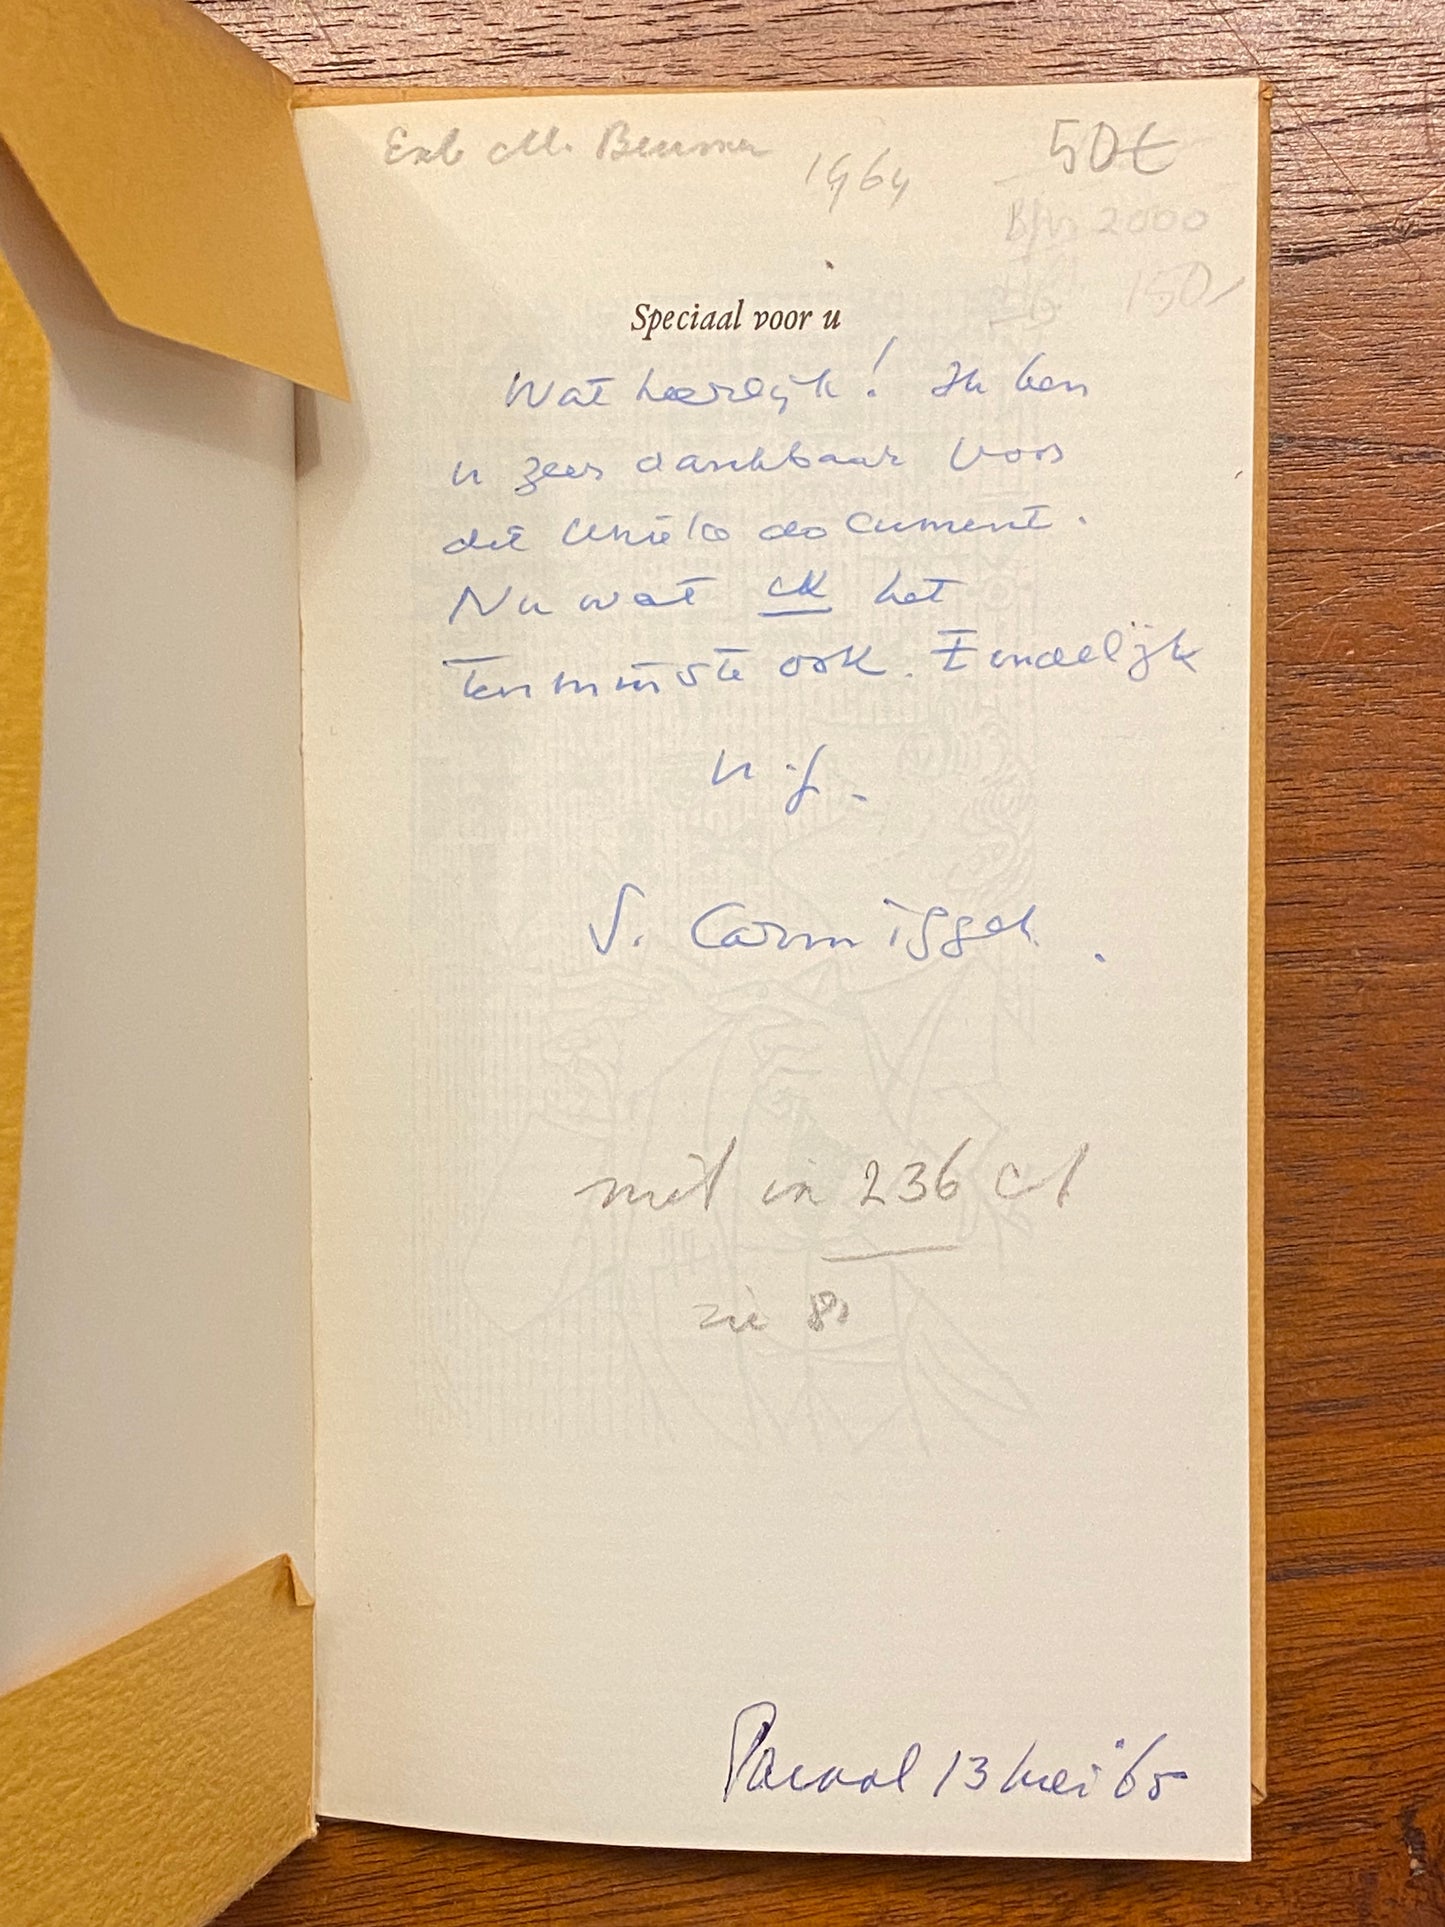 Exb M. Beumer 1964 50€
2000
150,
Speciaal voor u
Wat heerlijk! Ik ben
u zeer dankbaar voor
dit unieke document.
Nu wat ik het
tenminste ook. Eindelijk
S. Carmiggelt.
in 236
zie 81
13 mei '65